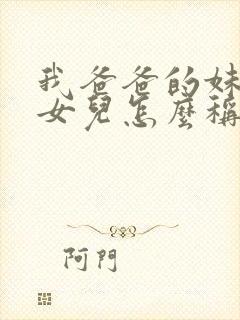 我爸爸的妹
女兒怎麼稱
阿門